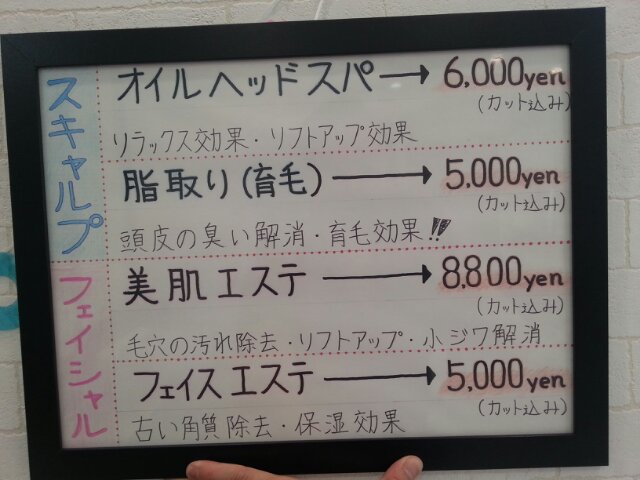 スキャルプ
オイルヘッドスパ→6,000yen
(カット込み)
リラックス効果・リフトアップ効果
脂取り(育毛)→5,000yen
(カット込み)
頭皮の臭い解消・育毛効果!!
フェイシャル
美肌エステ→8.800yen
(カット込み)
毛穴の汚れ除去・リフトアップ・小ジワ解消
フェイスエステ→5,000yen
(カット込み)
古い角質除去・保湿効果